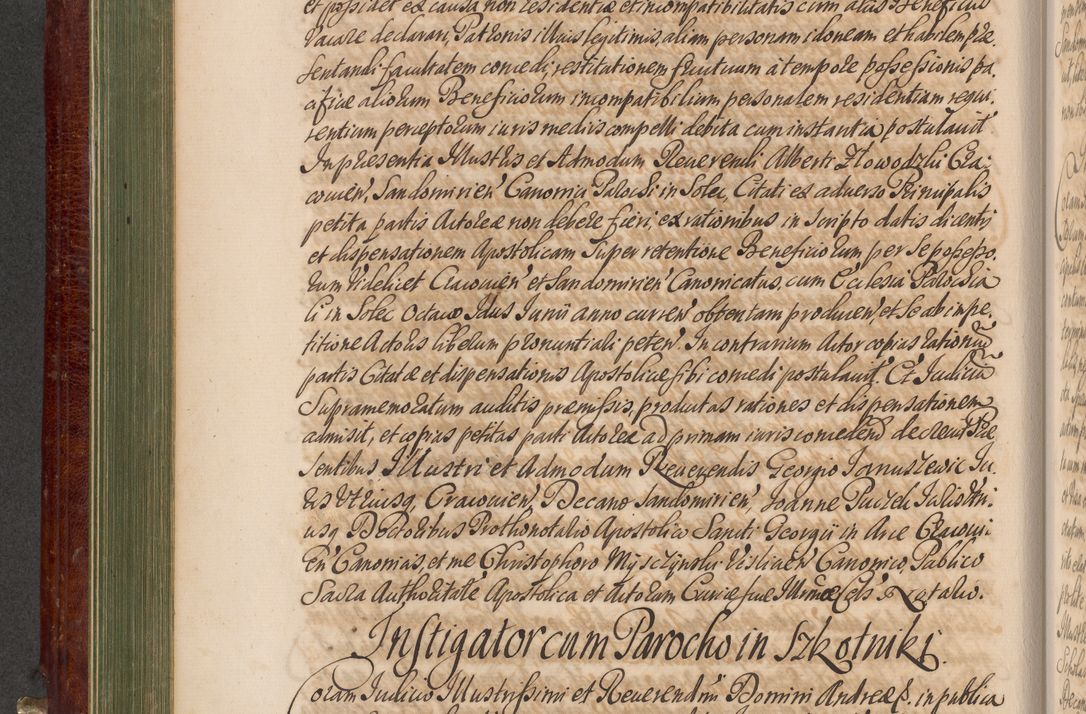 et possidet ex causa non residentiæ et incompatibilitatis cum alias Beneficiis
vacare declarari, Patronis illius legitimis, aliam personam idoneam et habilem præ,
sentandi facultatem concedi, restitutionem fructuum a tempore possessionis pa,
cificæ aliorum Beneficiorum incompatibilium personalem residentiam requi,
rentium perceptorum iuris mediis compelli debita cum instantia postulavit
In præsentia Illustris et Admodum Reverendi Alberti Złowodzki Cra,
covien, Sandomirien Canonici Parochi in Solec, Citati ex adverso Principalis
petita partis Actoreæ non debere fieri, ex rationibus in scripto datis dicentis
et dispensationem Apostolicam super retentione Beneficiorum per se possesso,
rum videlicet Cracovien et Sandomirien Canonicatus, cum Ecclesia Parochia
li in Solec Octavo Idus Iunii anno curren obtentam producen, et se ab inpe,
titione Actoris liberum pronuntiari peten. In contrarium Actor copias rationum
partis Citatæ et dispensationis Apostolicæ sibi concedi postulavit. Et Iudicium
Supramemoratum auditis præmissis, productas rationes et dispensationem
admisit, et copias petitas parti Actoreæ ad primam iuris concedend decrevit Præ
sentibus Illustri et Admodum Reverendis Georgio Januszewic Iu,
ris Utriusq, Cracovien, Decano Sandomirien, Joanne Puczek Iuris Utri,
usq Doctoribus Prothonotario Apostolico Sancti Georgii in Arce Cracovi
en Canonicis, et me Christophoro Myszczynski Vislicien Canonico Publico
Sacra Authoritate Apostolica et Actorum Curiæ suæ Illmæ Cels Notario.
Instigator cum Parocho in Szkotniki.
Coram Iudicio Illustrissimi et Reverendmi Domini Andreæ S. in publica